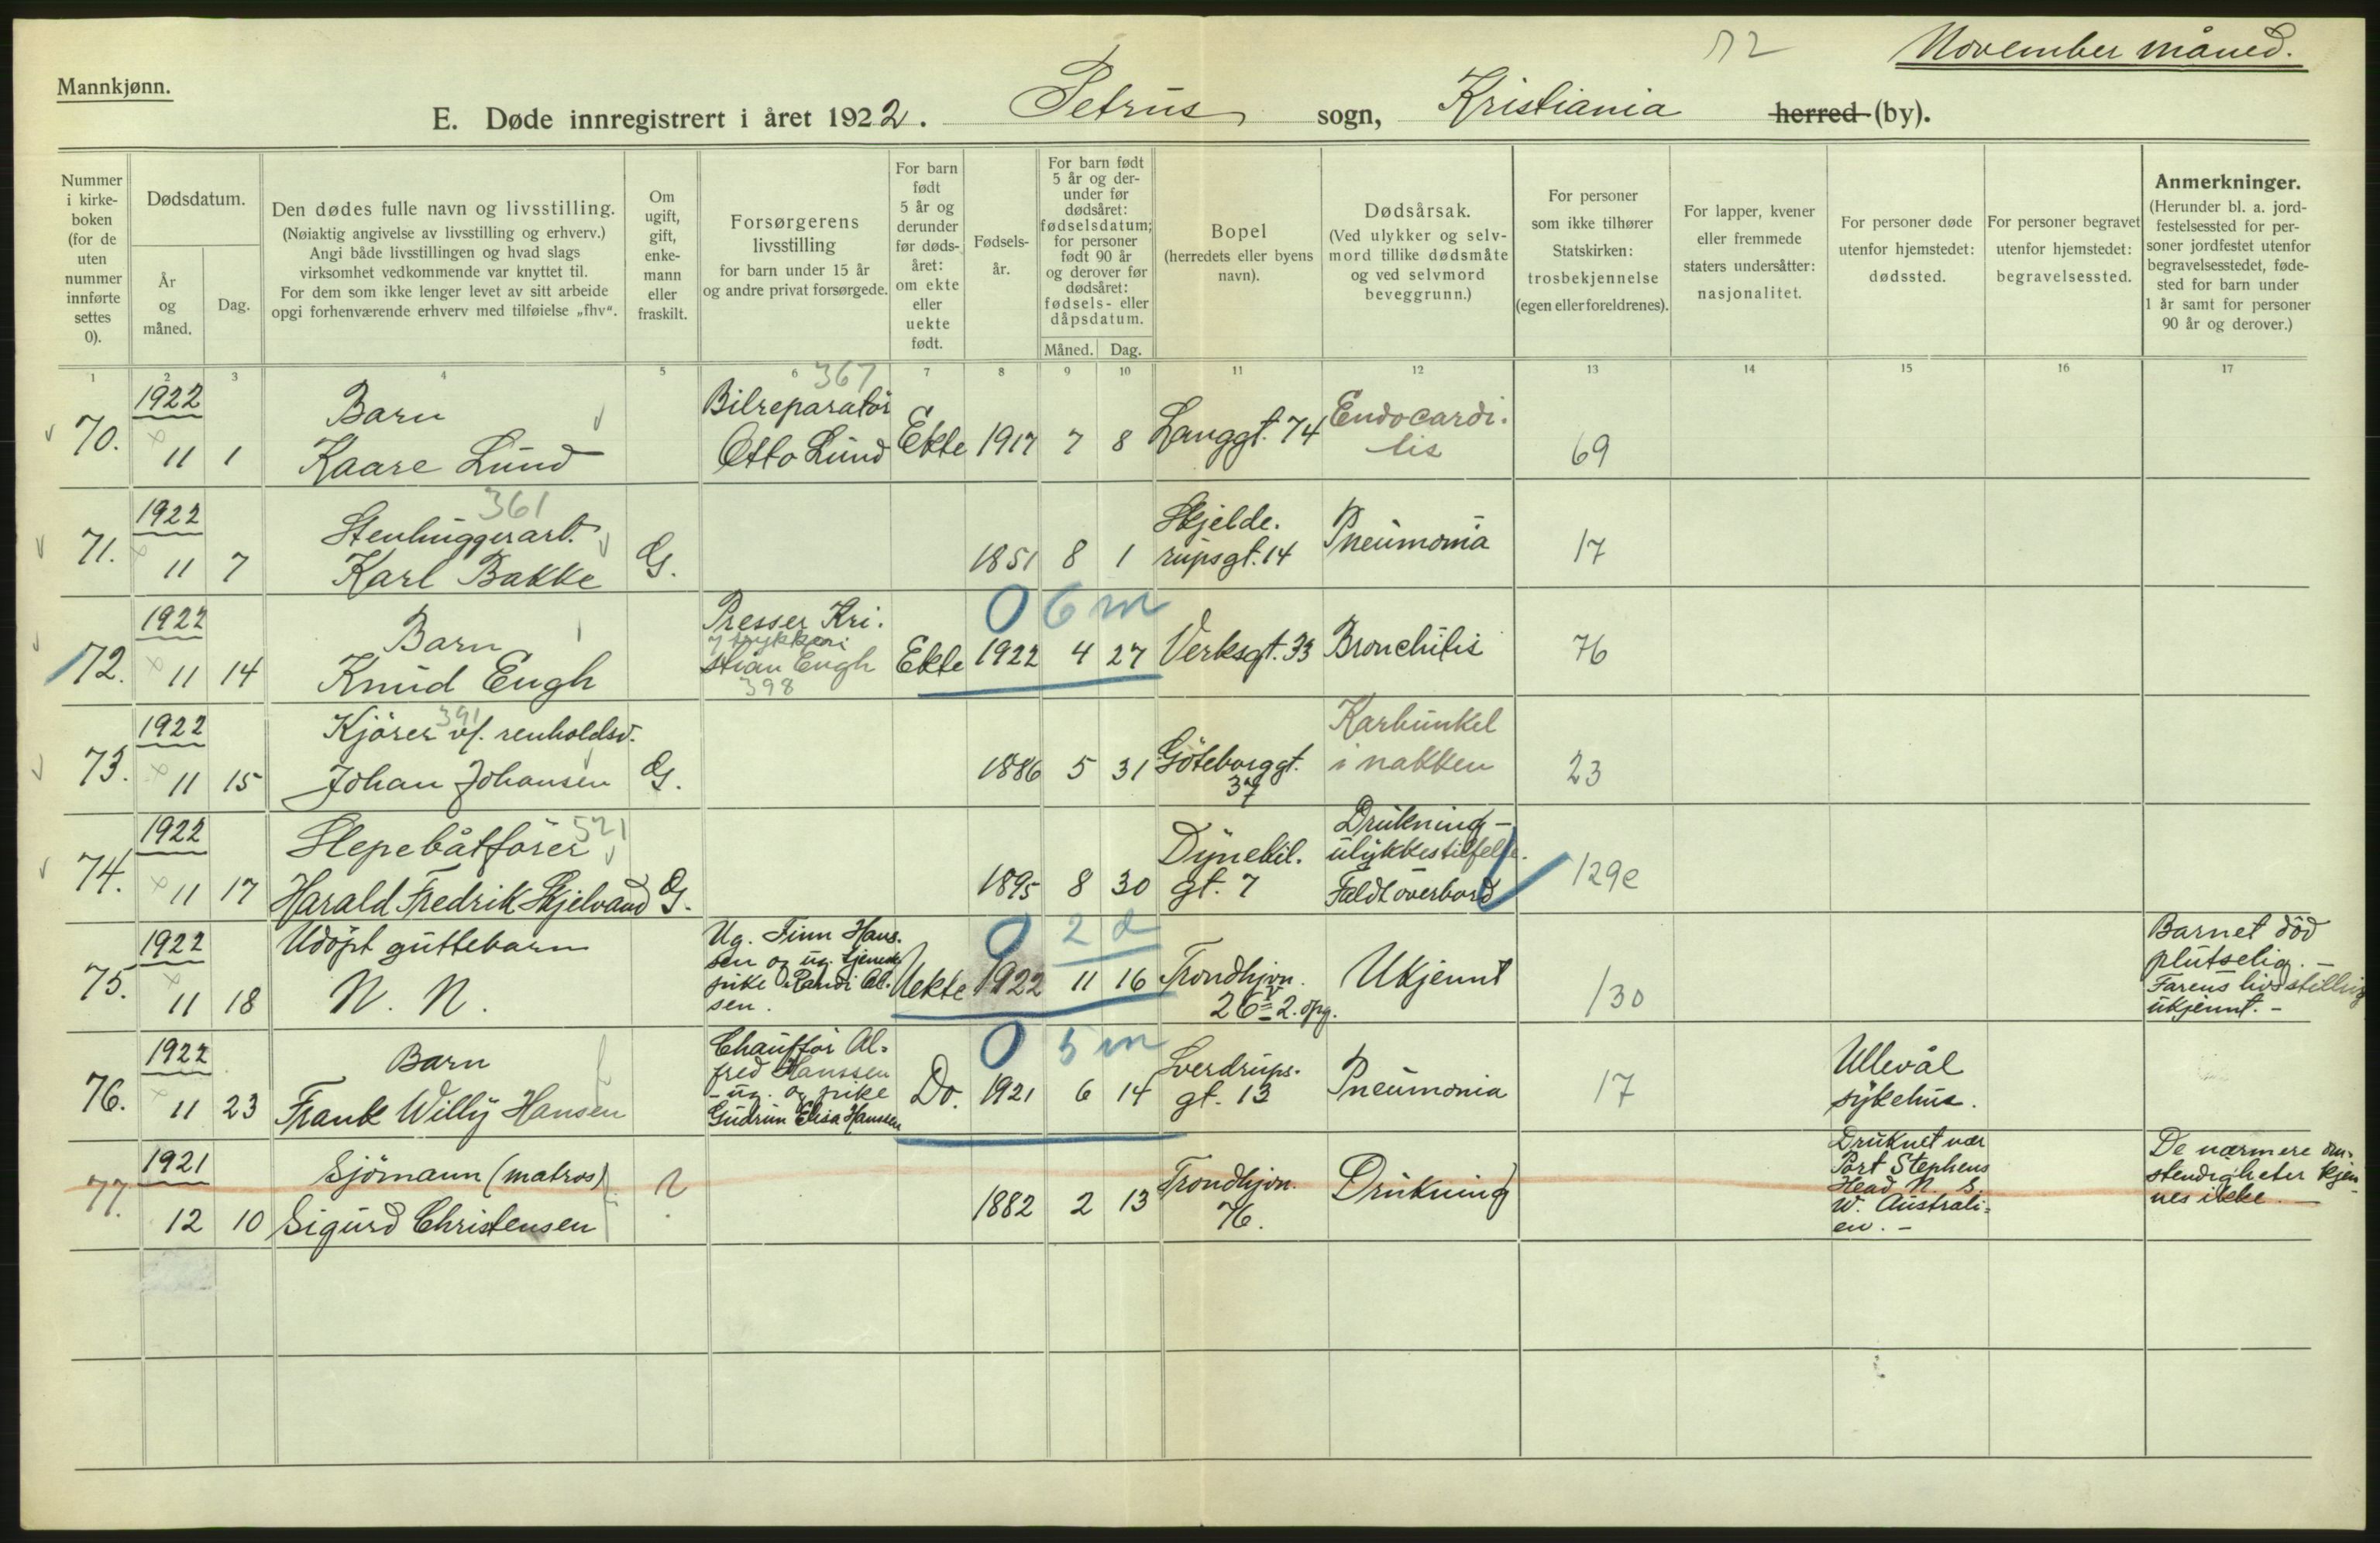 Mannkjønn.
72
November måned.
E. Døde innregistrert i året 1922. Petrus sogn, Kristiania herred (by).
Nummer i kirkeboken (for de uten nummer innførte settes 0).
Dødsdatum.
År og måned.
Dag.
Den dødes fulle navn og livsstilling.
(Nøiaktig angivelse av livsstilling og erhverv.)
Angi både livsstillingen og hvad slags
virksomhet vedkommende var knyttet til.
For dem som ikke lenger levet av sitt arbeide
opgi forhenværende erhverv med tilføielse „fhv“.
Om ugift, gift, enkemann eller fraskilt.
Forsørgerens
livsstilling
for barn under 15 år
og andre privat forsørgede.
For barn født 5 år og derunder før dødsåret: om ekte eller uekte født.
Fødselsår.
For barn født 5 år og derunder før dødsåret: fødselsdatum; for personer født 90 år og derover før dødsåret: fødsels- eller dåpsdatum.
Måned. Dag.
Bopel
(herredets eller byens
navn).
Dødsårsak.
(Ved ulykker og selvmord tillike dødsmåte
og ved selvmord
beveggrunn.)
For personer
som ikke tilhører
Statskirken:
trosbekjennelse
(egen eller foreldrenes).
For lapper, kvener
eller fremmede
staters undersåtter:
nasjonalitet.
For personer døde
utenfor hjemstedet:
dødssted.
For personer begravet
utenfor hjemstedet:
begravelsessted.
Anmerkninger.
(Herunder bl. a. jordfestelsessted for personer jordfestet utenfor
begravelsesstedet, fødested for barn under
1 år samt for personer
90 år og derover.)
1 2 3 4 5 6 7 8 9 10 11 12 13 14 15 16 17
70. 1922 11 1
Barn
Kaare Lund
367
Bilreparatör
Otto Lund
Ekte 1917 7 8
Langgt. 74
Endocardi-
tis
69
71. 1922 11 7
361
Stenhuggerarb.
Karl Bakke
G.
1851 8 1
Skjelde-
rupsgt. 14
Pneumonia
17
72. 1922 11 14
Barn
Knud Engh
Presser Kri-
i trykkeri
stian Engh
398
Ekte 1922 4 27
0 6 m
Verksgt. 33
Bronchitis
76
73. 1922 11 15
391
Kjörer v/. renholdsv.
Johan Johansen
G.
1886 5 31
Göteborggt.
37
Karbunkel
i nakken
23
74. 1922 11 17
521
Slepebåtförer
Harald Fredrik Skjelvand
G.
1895 8 30
Dynekil-
gt. 7
Drukning -
ulykkestilfelle.
Faldt overbord
129e
75. 1922 11 18
Udöpt guttebarn
N. N.
Ug. Finn Han-
sen og ug. tjeneste
pike Randi Ol-
sen.
Uekte 1922 11 16
0 2 d
Trondhjvn.
26 IV 2. opg.
Ukjennt
130
Barnet död
plutselig. -
Farens livsstilling
ukjennt. -
76. 1922 11 23
Barn
Frank Willy Hansen
Chaufför Al-
fred Hanssen
- ug. og pike
Gudrun Elisa Hanssen
Do. 1921 6 14
0 5 m
Sverdrups-
gt. 13
Pneumonia
17
Ullevål
sykehus.
77. 1921 12 10
Sjömann (matros)
Sigurd Christensen
?
1882 2 13
Trondhjvn.
76.
Drukning
Druknet vær
Port Stephens
Head N. S.
W. Australi-
en. -
De nærmere om-
stendigheter kjen-
nes ikke. -